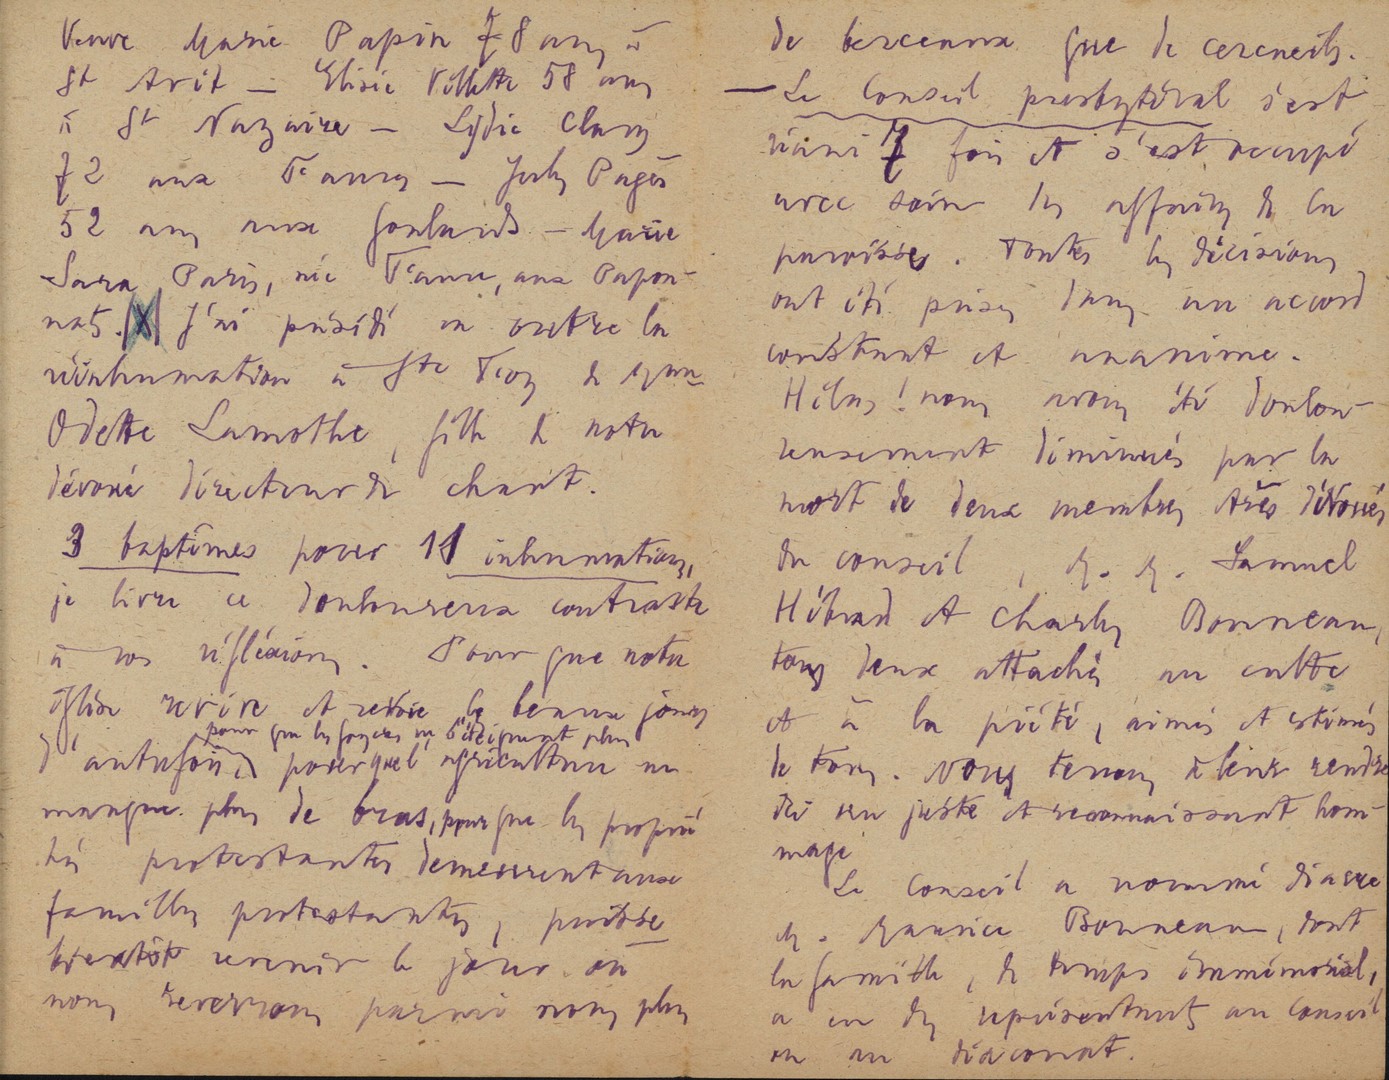 Veuve Marie Papin 78 ans à
St Avit — Elisée Villette 58 ans
à St Nazaire — Lydie Clary
72 aux Faures — Jules Pagès
52 ans aux Goulards — Marie
Sara Paris, née Faure, aux Papon-
nats. X J'ai présidé en outre la
réinhumation à Ste Foy de
Odette Lamothe, fille de notre
dévoué directeur de chant.
3 baptêmes pour 11 inhumations,
je livre ce douloureux contraste
à vos réfléxions. Pour que notre
Eglise revive et revoie les beaux jours
pour que les foyers ne s'éteignent plus
d'autrefois, pour que l'agriculture ne
manque plus de bras, pour que les proprié
tés protestantes demeurent aux
familles protestantes, puisse
bientôt revenir le jour où
nous reverrons parmi nous plus
de berceaux que de cercueils.
— Le Conseil presbytéral s'est
réuni 7 fois et s'est occupé
avec soin des affaires de la
paroisse. Toutes les décisions
ont été prises dans un accord
constant et unanime.
Hélas ! nous avons été doulou-
reusement diminués par la
mort de deux membres très dévoués
du conseil, M. M. Samuel
Hébrard et Charles Bonneau,
tous deux attachés au culte
et à la piété, aimés et estimés
de tous. Nous tenons à leur rendre
ici un juste et reconnaissant hom-
mage
Le Conseil a nommé diacre
M. Maurice Bonneau, dont
la famille, de temps immémorial,
a eu des représentants au Conseil
ou au diaconat.